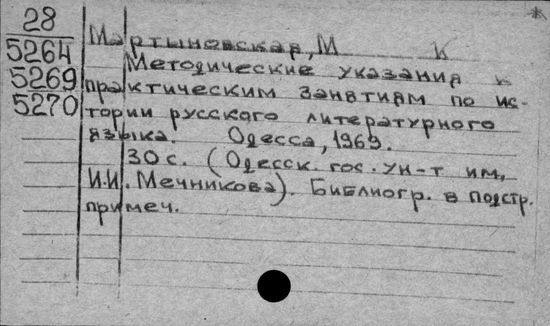 28
5264
5269
5270
Мартыновская, М К
Методические указания к
практическим занятиям по ис-
тории русского литературного
языка. Одесса, 1969.
30 с. (Одесск. гос. ун-т им,
И.И. Мечникова). Библиогр. в подстр.
примеч.